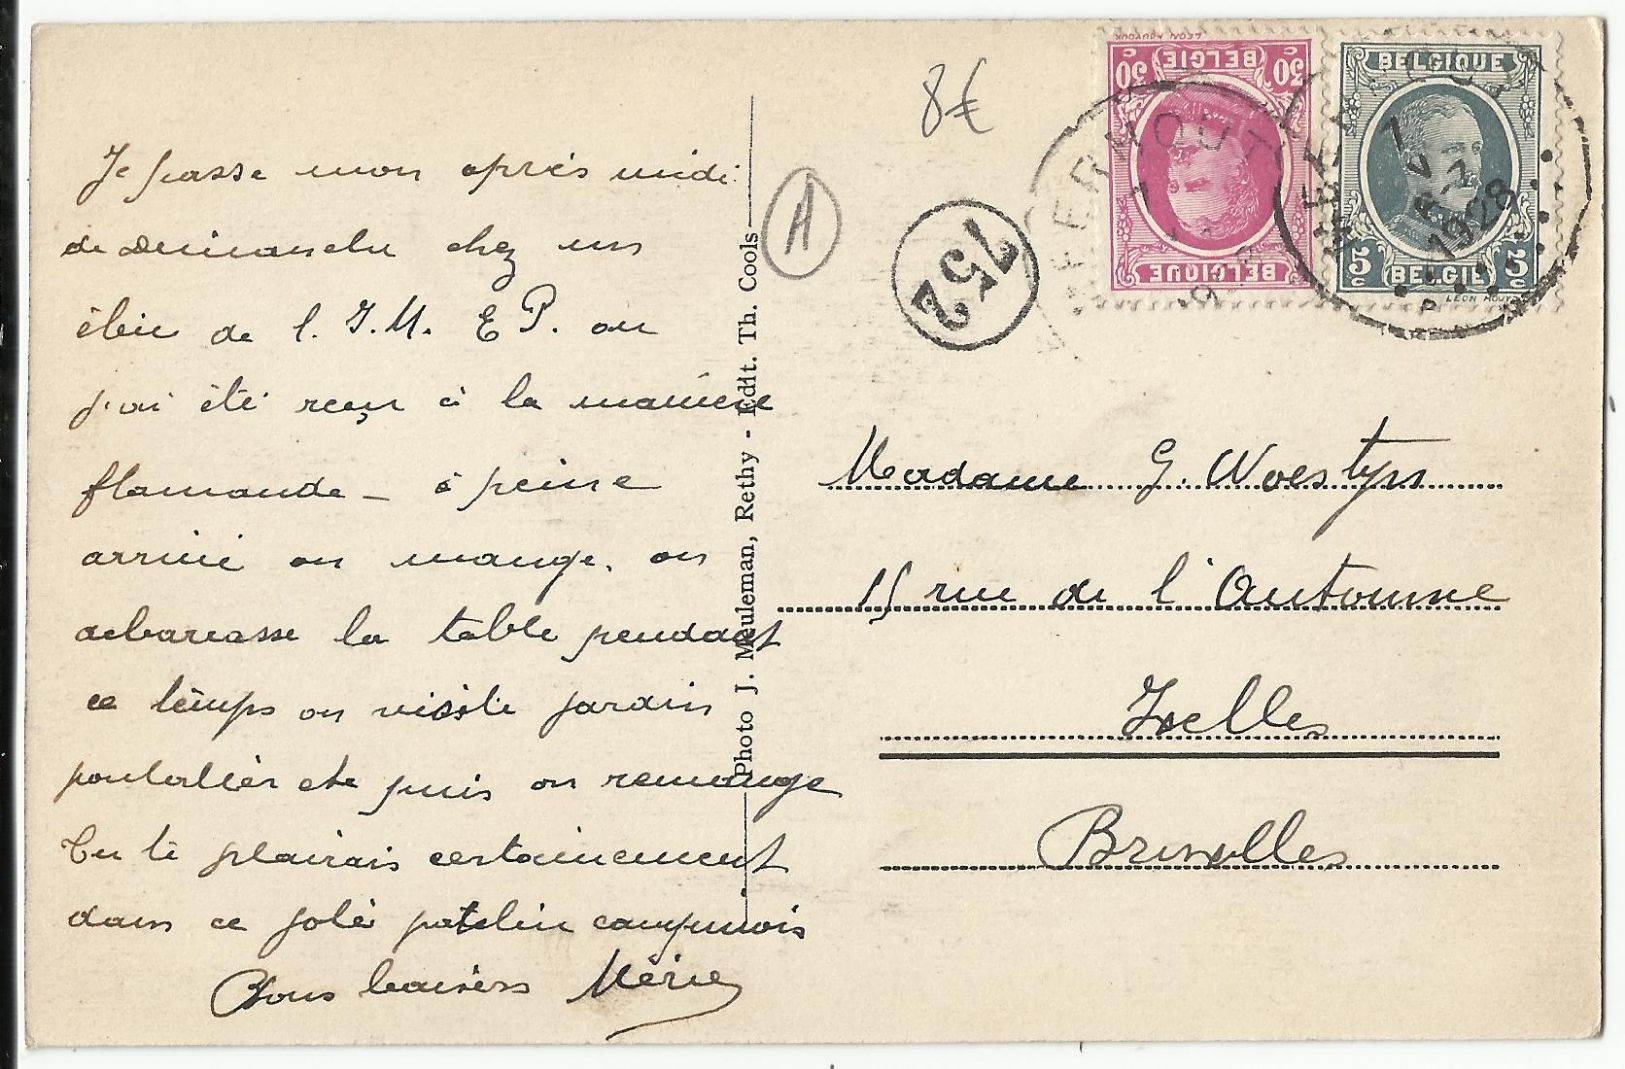 Je passe mon après midi
de dimanche chez un
élève de l'I.M.E P. où
j'ai été reçu à la manière
flamande – à peine
arrivé on mange. on
debarrasse la table pendant
ce temps on visite jardin
poulailler etc puis on remange
Tu te plairais certainement
dans ce joli patelin campinois
Bons baisers
Photo J. Meuleman, Rethy - Edit. Th. Cools
8€
A
752
30 c BELGIË 30 c
BELGIQUE
BELGIQUE
5 c BELGIË 5 c
MEERHOUT
MEERHOUT
1928
Madame G. Woestyn
15 rue de l'Automne
Ixelles
Bruxelles